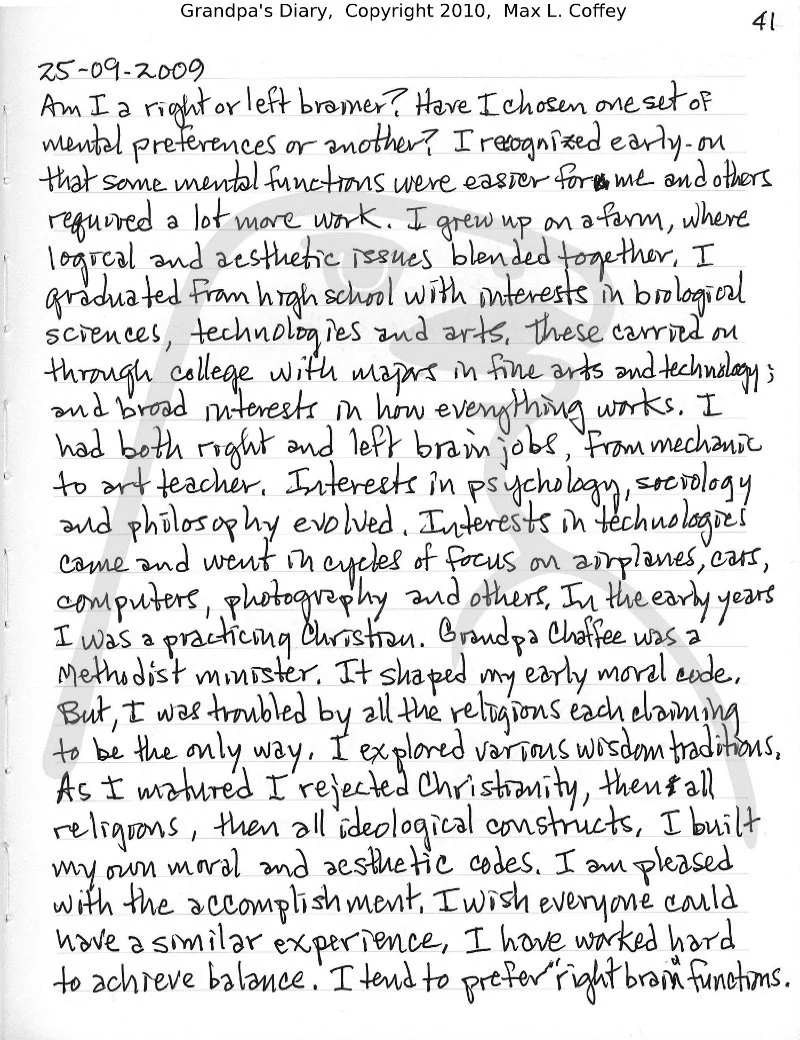 Grandpa's Diary, Copyright 2010, Max L. Coffey
41
25-09-2009
Am I a right or left brainer? Have I chosen one set of
mental preferences or another? I recognized early-on
that some mental functions were easier for me and others
required a lot more work. I grew up on a farm, where
logical and aesthetic issues blended together. I
graduated from high school with interests in biological
sciences, technologies and arts. These carried on
through college with majors in fine arts and technology;
and broad interests in how everything works. I
had both right and left brain jobs, from mechanic
to art teacher. Interests in psychology, sociology
and philosophy evolved. Interests in technologies
came and went in cycles of focus on airplanes, cars,
computers, photography and others. In the early years
I was a practicing Christian. Grandpa Chaffee was a
Methodist minister. It shaped my early moral code.
But, I was troubled by all the religions each claiming
to be the only way. I explored various wisdom traditions.
As I matured I rejected Christianity, then all
religions, then all ideological constructs. I built
my own moral and aesthetic codes. I am pleased
with the accomplishment. I wish everyone could
have a similar experience, I have worked hard
to achieve balance. I tend to prefer "right brain" functions.